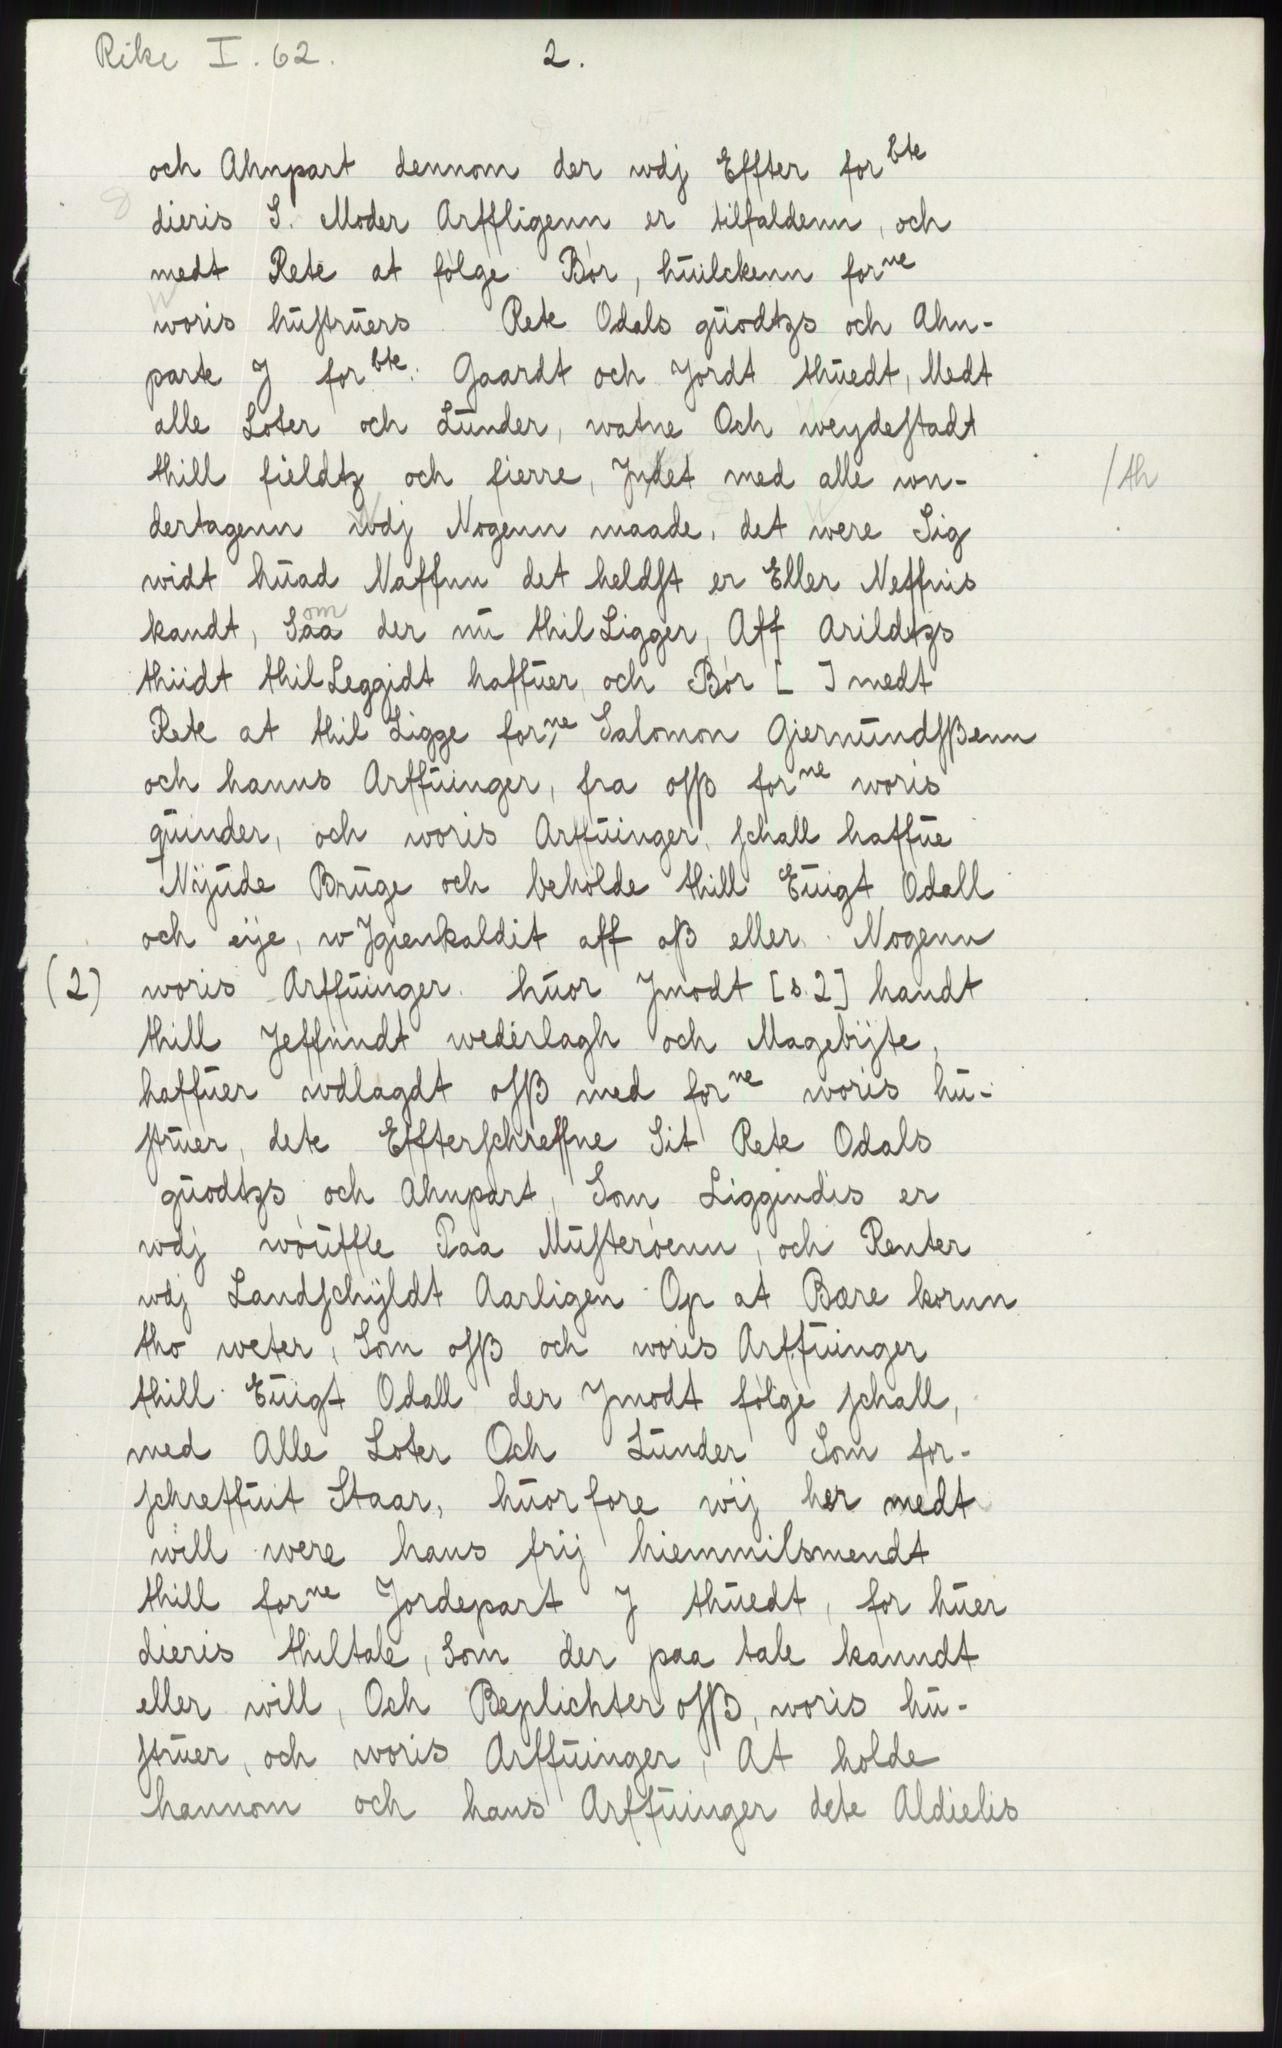 Rike I. 62. 2.
och Ahnpart dennom der wdj Effter forbte
dieris S. Moder Arffligenn er tilfaldenn, och
medt Rete at følge Bør, huilckenn forne
woris hustruers Rete Odals guodtzs och Ahn-
parte J forbte: Gaardt och Jordt thuedt, Medt
alle Loter och Lunder, watne Och weydestadt
thill fieldtz och fierre, Jndet med alle wn- /th
dertagenn wdj Nogenn maade, det were Sig
widt huad Naffnn det heldst er Eller Neffnis
kandt, Saa om der nu thil Ligger, Aff arildtzs
thiidt thil Leggidt haffuer, och Bør [ ] medt
Rete at thil Ligge forne Salomon Giermundsßenn
och hanns Arffuinger, fra osß forne woris
quinder, och woris Arffuinger, schall haffue
Nÿude Bruge och beholde thill Euigt Odall
och eÿe, w Jgienkaldit aff oß eller Nogenn
(2) woris Arffuinger. huor Jmodt [s. 2] handt
thill Jeffnndt wederlagh och Magebÿte,
haffuer wdlagdt osß med forne woris hu-
struer, dete Effterschreffne Sit Rete Odals
guodtzs och Ahnpart, Som Liggindis er
wdj wouffle Paa Musterøenn, och Renter
wdj Landschÿldt Aarligen Op at Bære kornn
tho weter, Som osß och woris Arffuinger
thill Euigt Odall der Jmodt følge schall,
med Alle Loter Och Lunder Som for-
schreffuit Staar, huorfore wij her medt
will were hans frij hiemmilsmendt
thill forne Jordepart J thuedt, for huer
dieris thiltale, Som der paa tale kanndt
eller will, Och Beplichter osß, woris hu-
struer, och woris Arffuinger, At holde
hannom och hans Arffuinger dete Aldielis